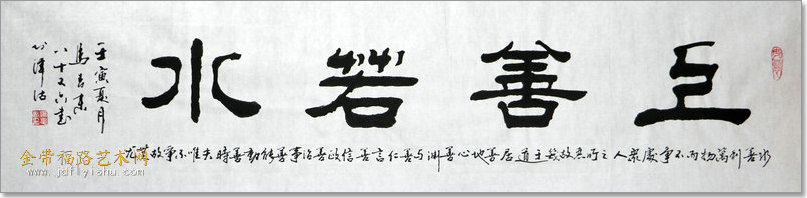 上善若水
水善利萬物而不爭處衆人之所惡故幾于道居善地心善淵与善仁言善信政善治事善能動善時夫唯不爭故無尤
壬寅夏月
八十又六書
於津沽
金带福路艺术网
www.jdflyishu.com